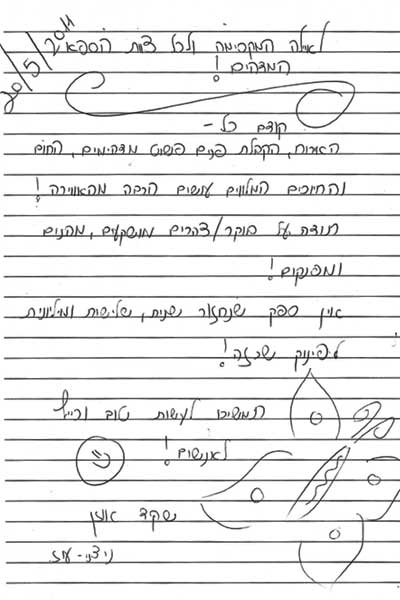 20/5/2011
לאילה המקסימה ולכל צוות הספא
המדהים!
קודם כל -
האירוח, הקבלת פנים פשוט מדהימים, החום
והחיוכים המלווים עושים הרבה מהאווירה!
תודה על בוקר/צהרים מושקעים, מהנים
ומפנקים!
אין ספק שנחזור שנית, שלישית ומיליונית
לפינוק שכזה!
תמשיכו לעשות טוב וכייף
לאנשים!
שקד
ניצני-עוז